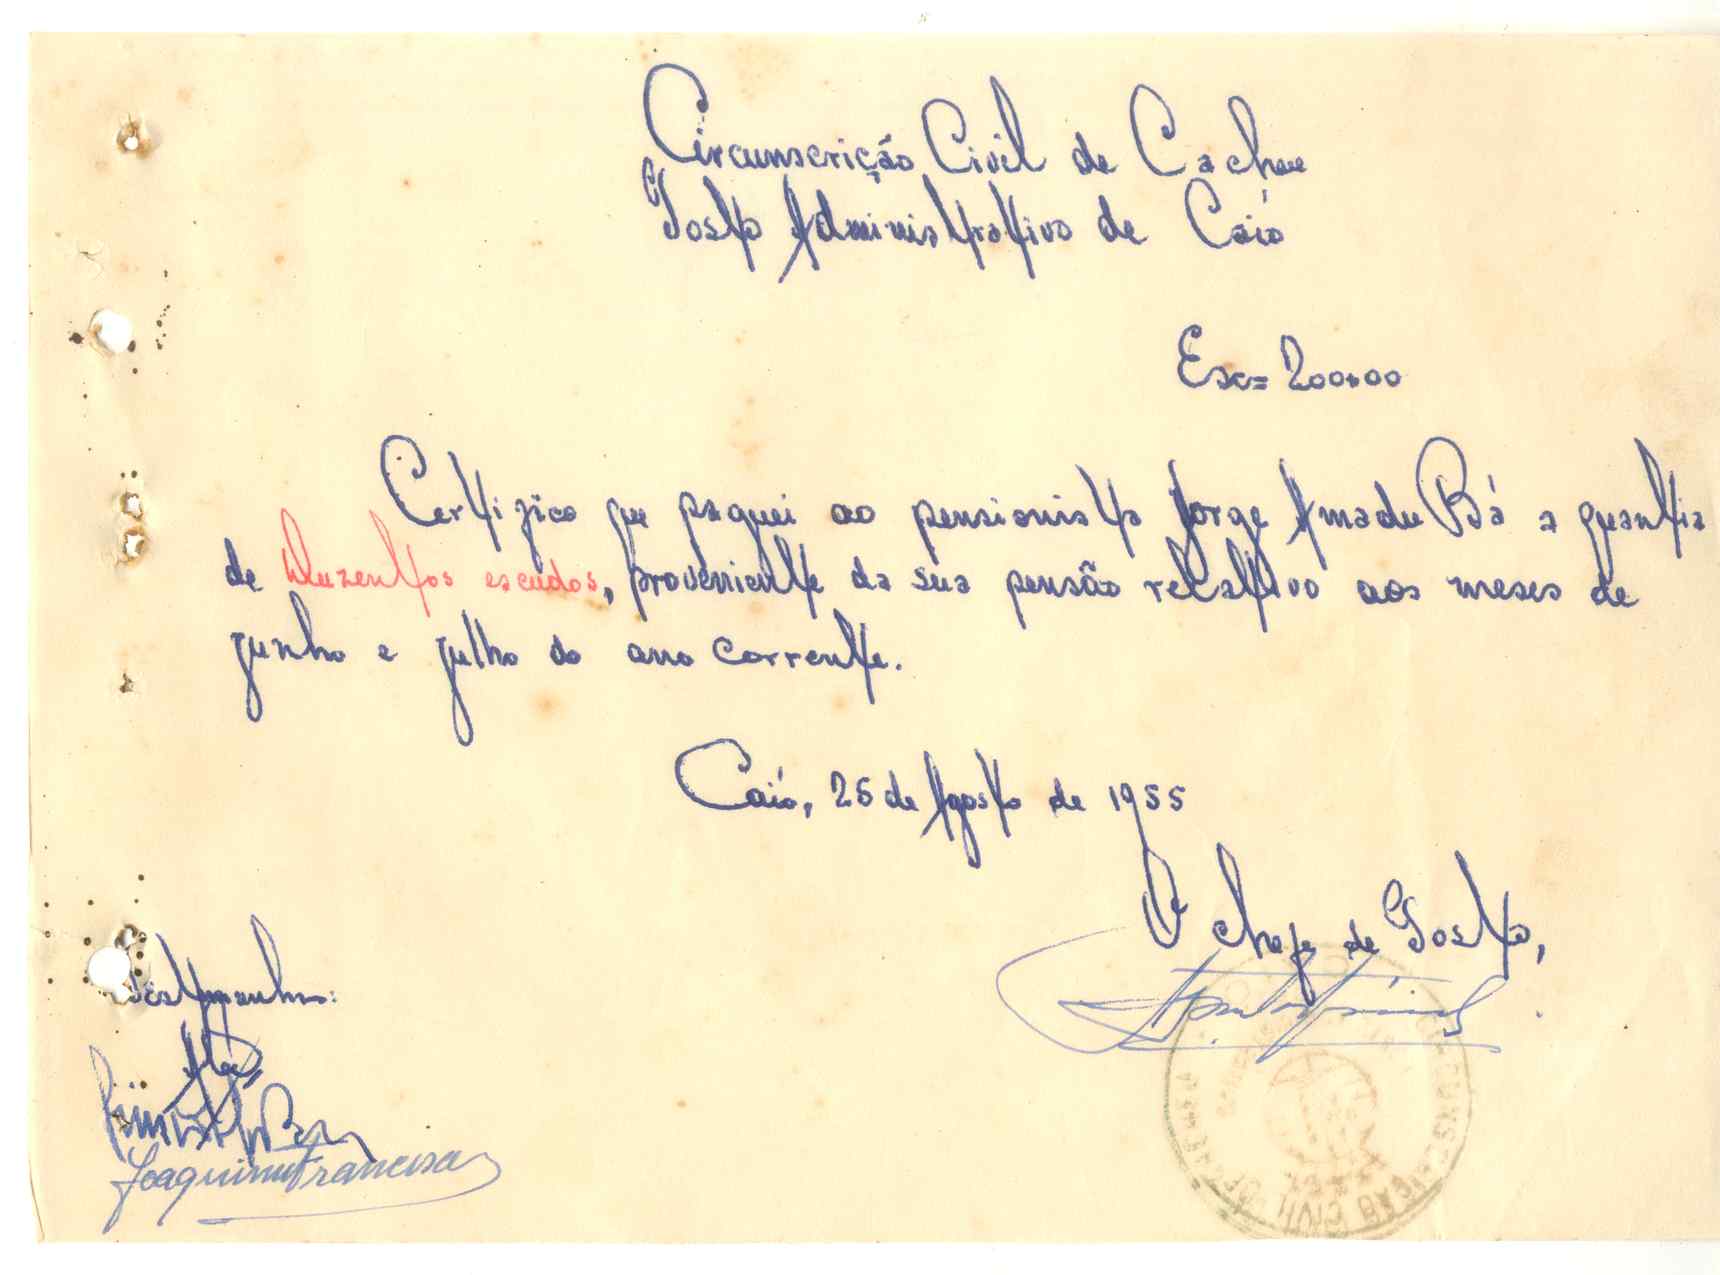 Circunscrição Civil de Cacheu
Posto Administrativo de Caió
Esc= 200$00
Certifico que paguei ao pensionista Jorge Amadu Bá a quantia
de Duzentos escudos, proveniente da sua pensão relativo aos meses de
junho e julho do ano corrente.
Caió, 25 de Agosto de 1955
O Chefe de Posto,
Testemunhas:
Joaquim Francisco
CIRCUNSCRIÇÃO CIVIL